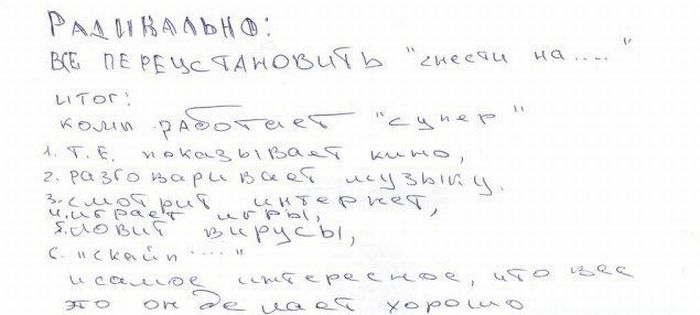 РАДИКАЛЬНО:
ВСЕ ПЕРЕУСТАНОВИТЬ "снести на...."
итог:
комп работает "супер"
1. т.е. показывает кино,
2. разговаривает музыку.
3. смотрит интернет,
4. играет игры,
5. ловит вирусы,
6. "скайп ...."
и самое интересное, что все
это он делает хорошо